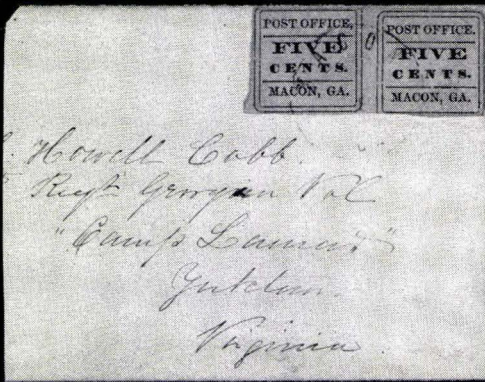 POST OFFICE,
FIVE
CENTS.
MACON, GA.
POST OFFICE.
FIVE
CENTS.
MACON, GA.
Howell Cobb
Regt Georgia Vol
"Camp
Virginia